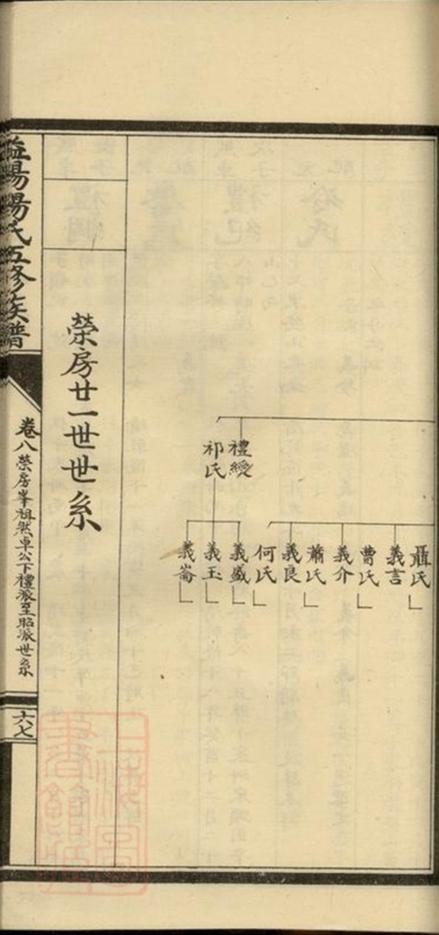 禮綬
祁氏
聶氏
義言
曹氏
義介
蕭氏
義良
何氏
義盛
義玉
義崙
榮房廿一世世系
益陽湯氏五修族譜
卷八 榮房峯祖煦車公下禮派至昭派世系
六七